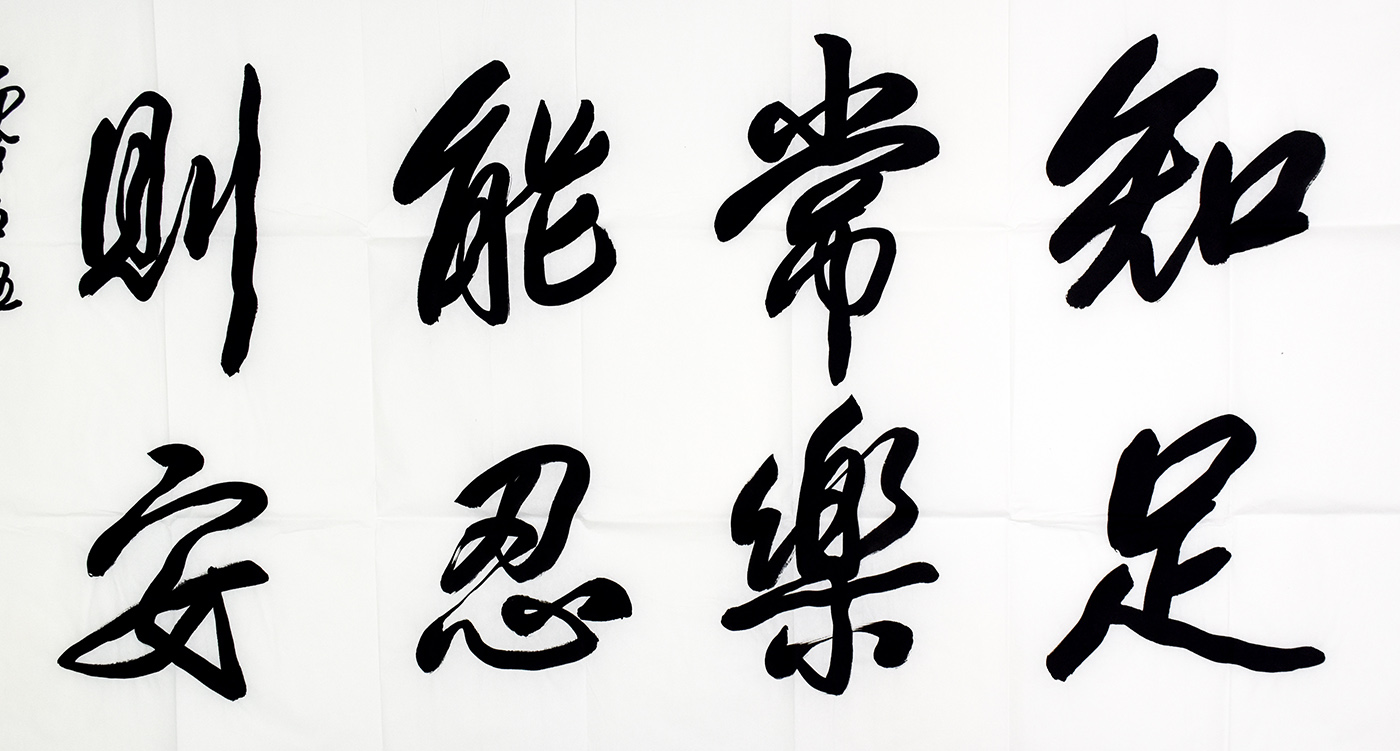 知足
常樂
能忍
則安